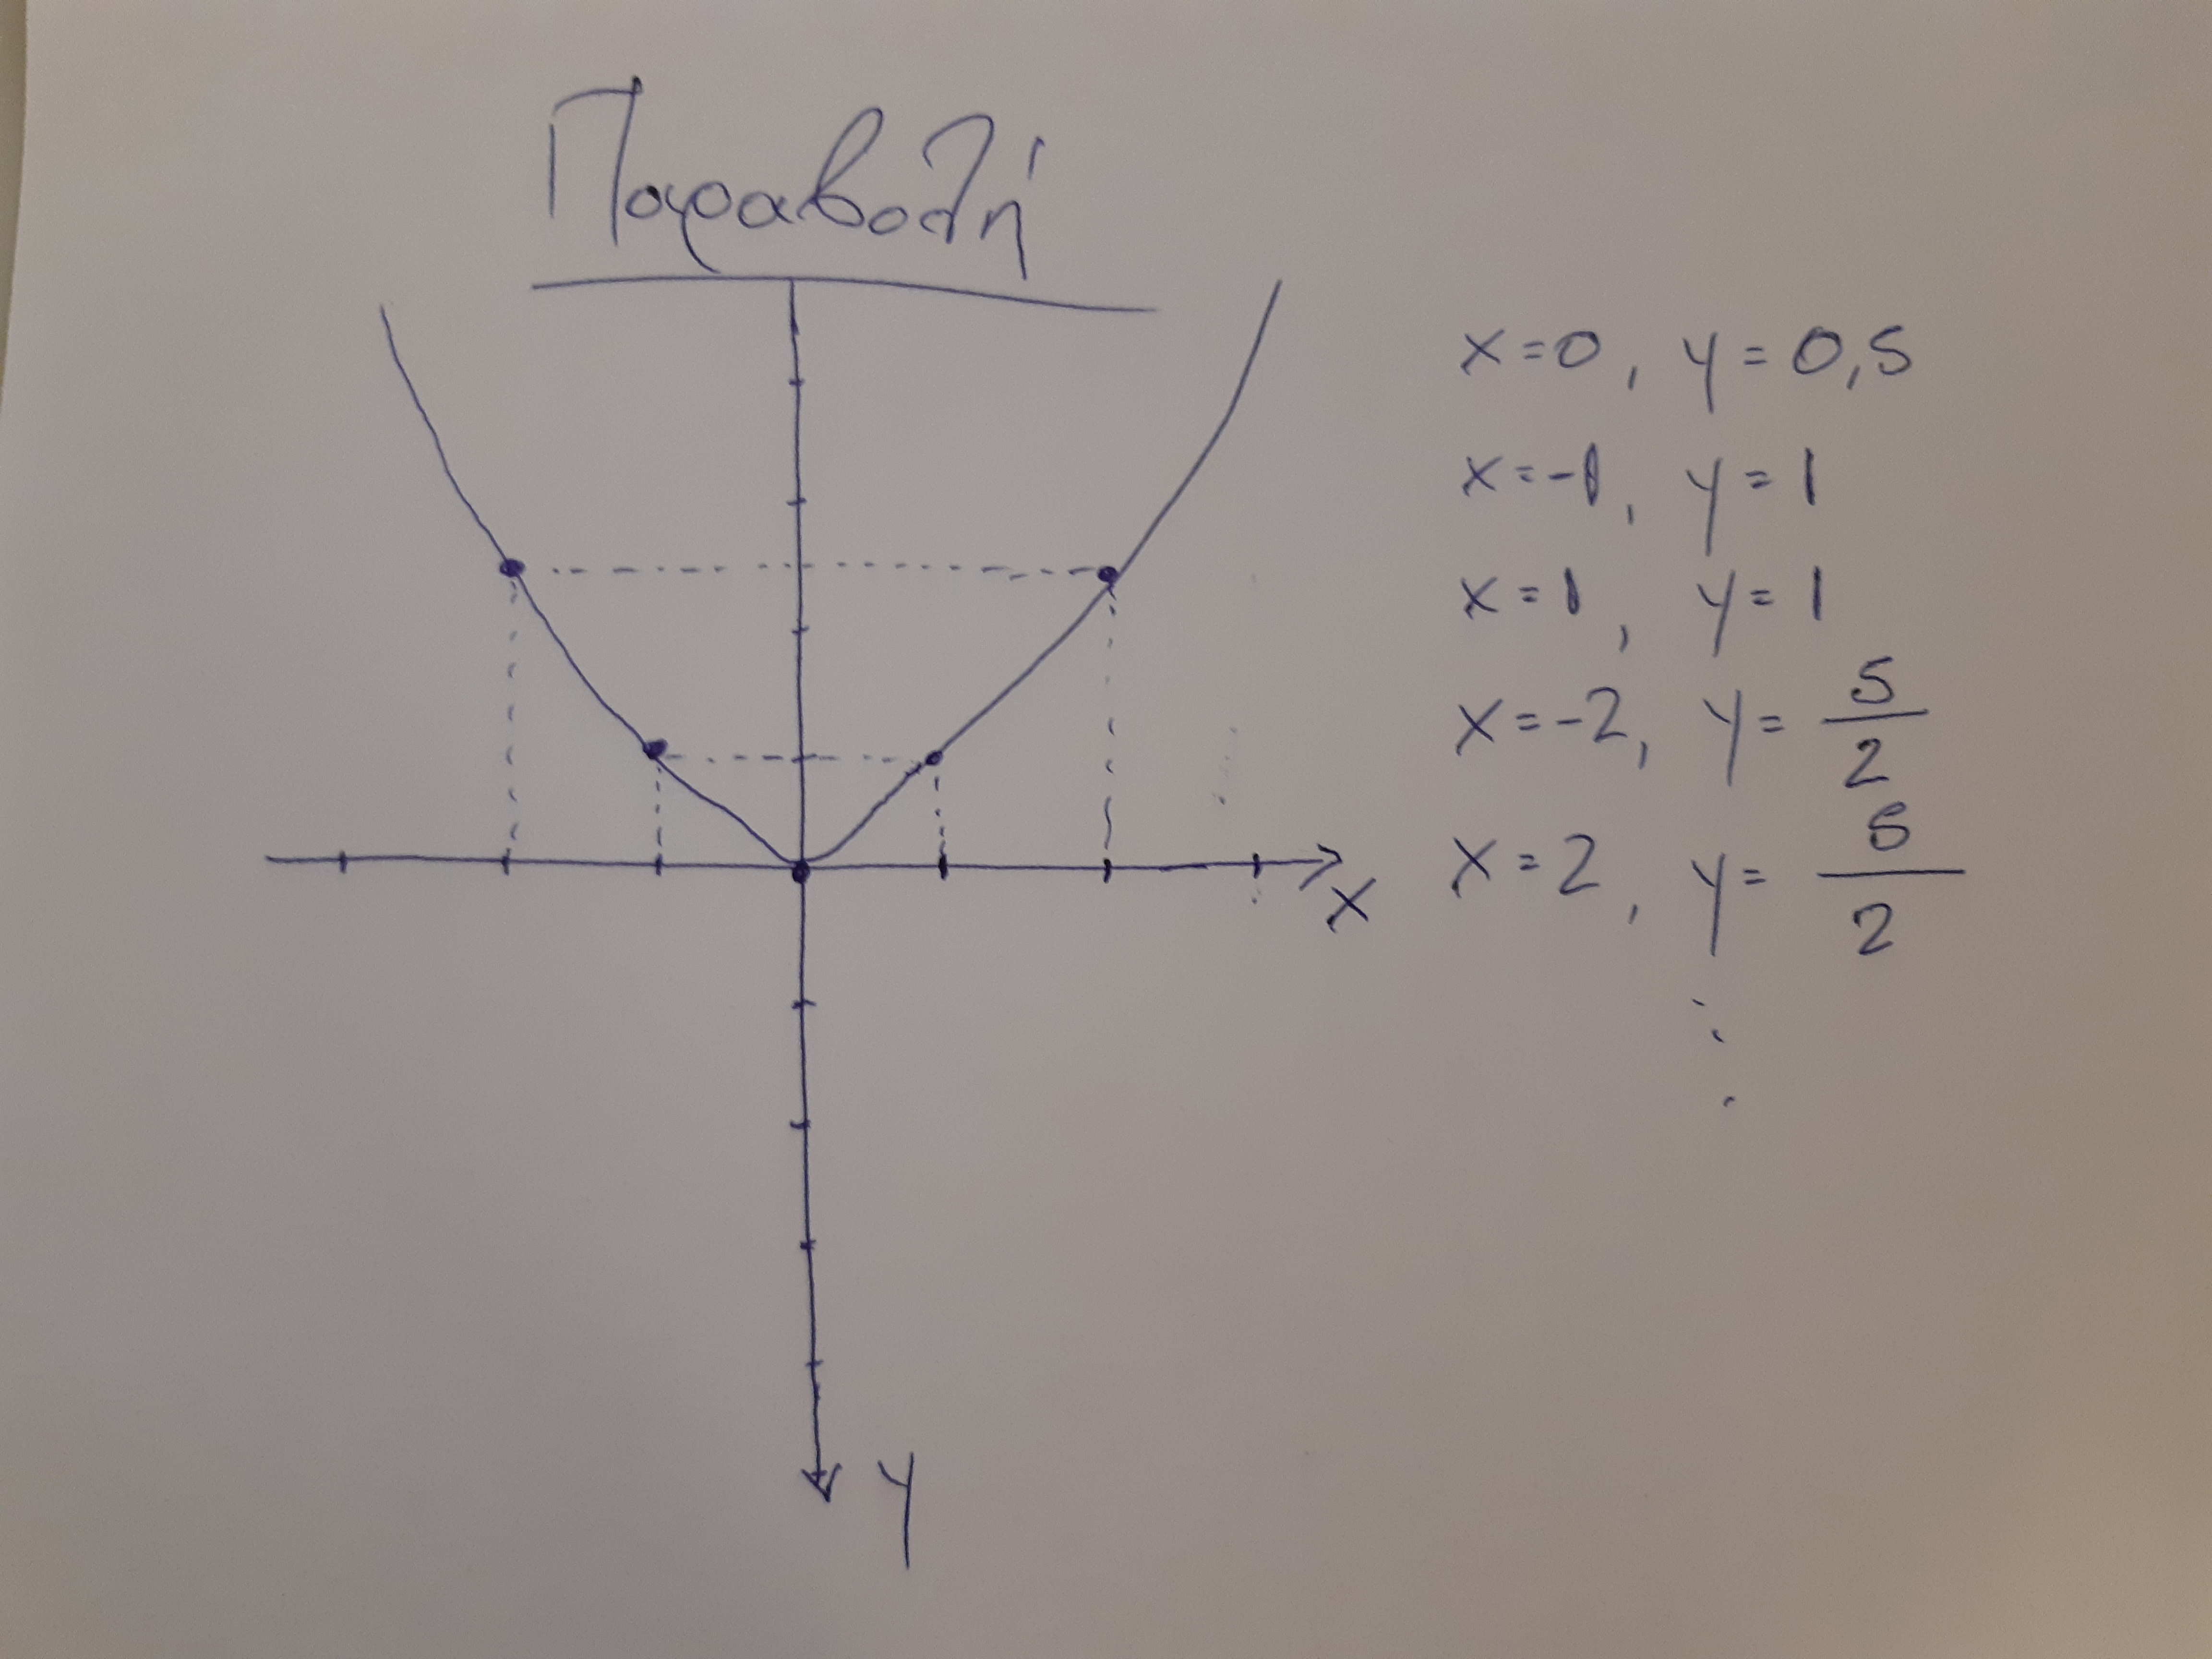 Παραβολή
x=0, y=0,5
x=-1, y=1
x=1, y=1
x=-2, y=5/2
x=2, y=5/2
⋮
x
y